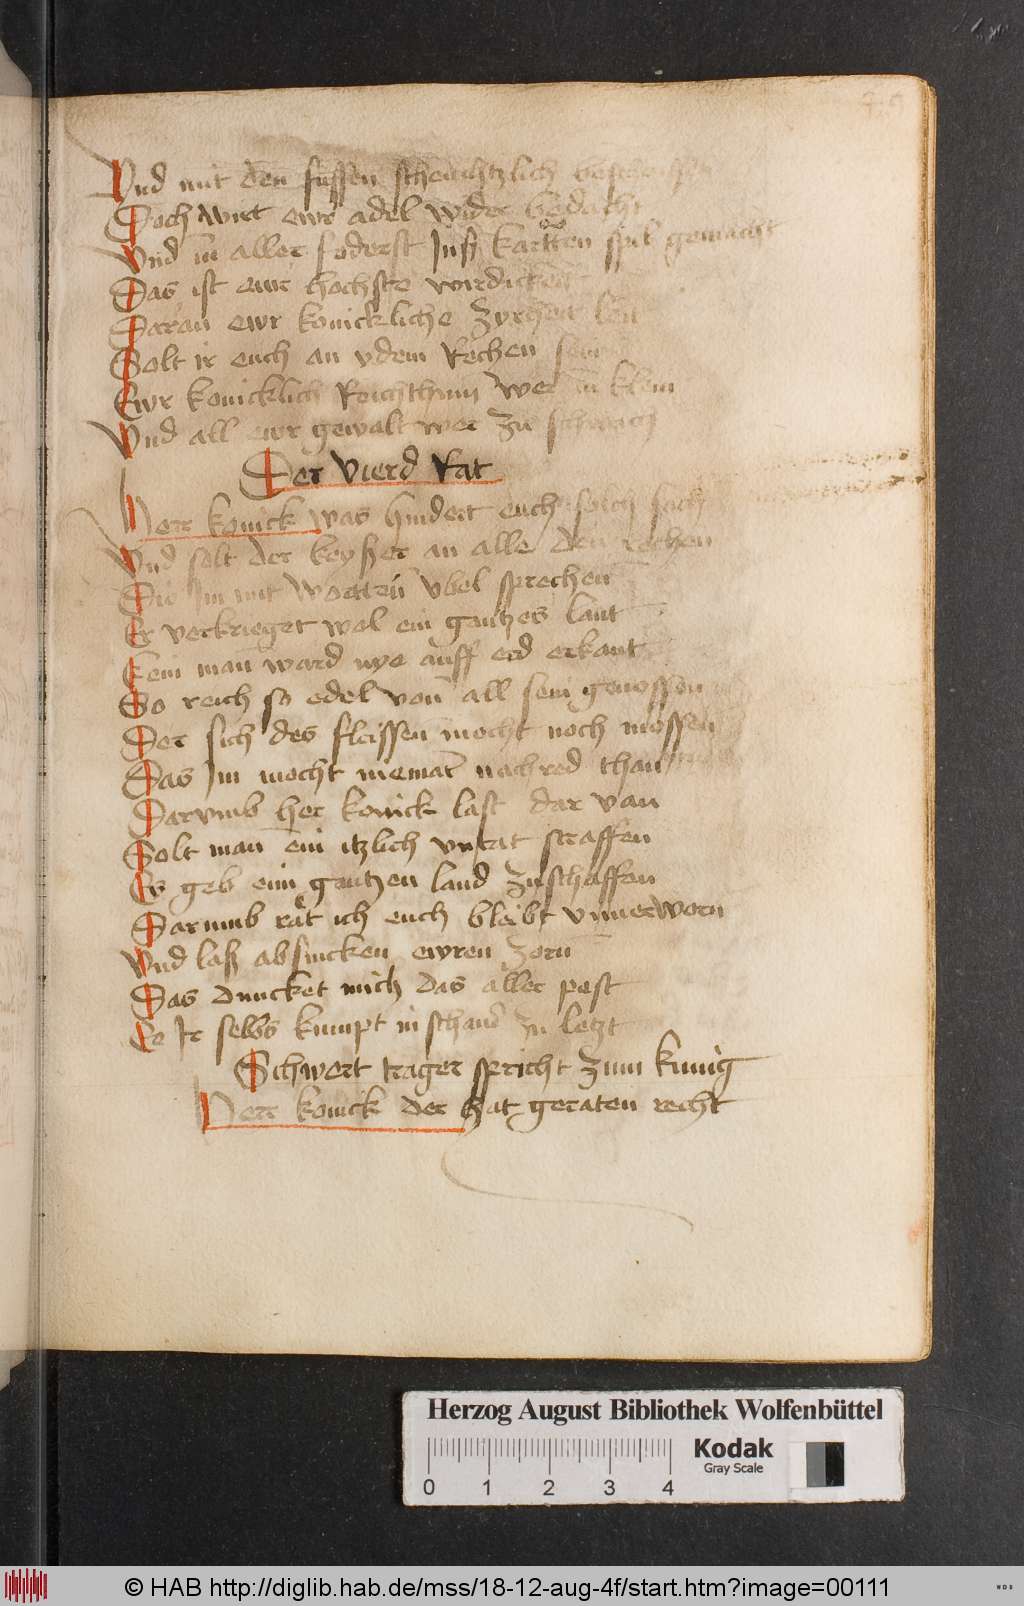 Vnd mit den fussen scheuchtzlich
Doch wirt ewr adel wider bedacht
Vnd in aller foderst Inß kartten spil gemacht
Das ist ewr hochste wirdickeit
Daran ewr konickliche zyrheit leit
Solt ir euch an ydem Rechen sein
Ewr konicklich Reichthum wer zu klein
Vnd all ewr gewalt wer zu schwach
Der Vierd Rat
Herr konick was hindert euch solch sach
Vnd solt der keyßer an allen den rechen
Die Im mit wortten Vbel sprechen
Er verkrieget wol ein gantzes lant
kein man ward nye auff erd erkant
So reich so edel von all sein genossen
Der sich des fleissen mocht noch mossen
Das Im mocht niemat nachred than
Darvmb her konick last dar van
Solt man ein itzlich vnrat straffen
Es geb eim gantzen land zuschaffen
Darumb rat ich euch bleibt vnuerworn
Vnd laß absincken ewren zorn
Das duncket mich das aller pest
Ee Ir selbs kumpt in schand zu letzt
Schwert trager spricht zum kunig
Herr konick der hat geraten recht
Herzog August Bibliothek Wolfenbüttel
0 1 2 3 4
Kodak
Gray Scale
© HAB http://diglib.hab.de/mss/18-12-aug-4f/start.htm?image=00111